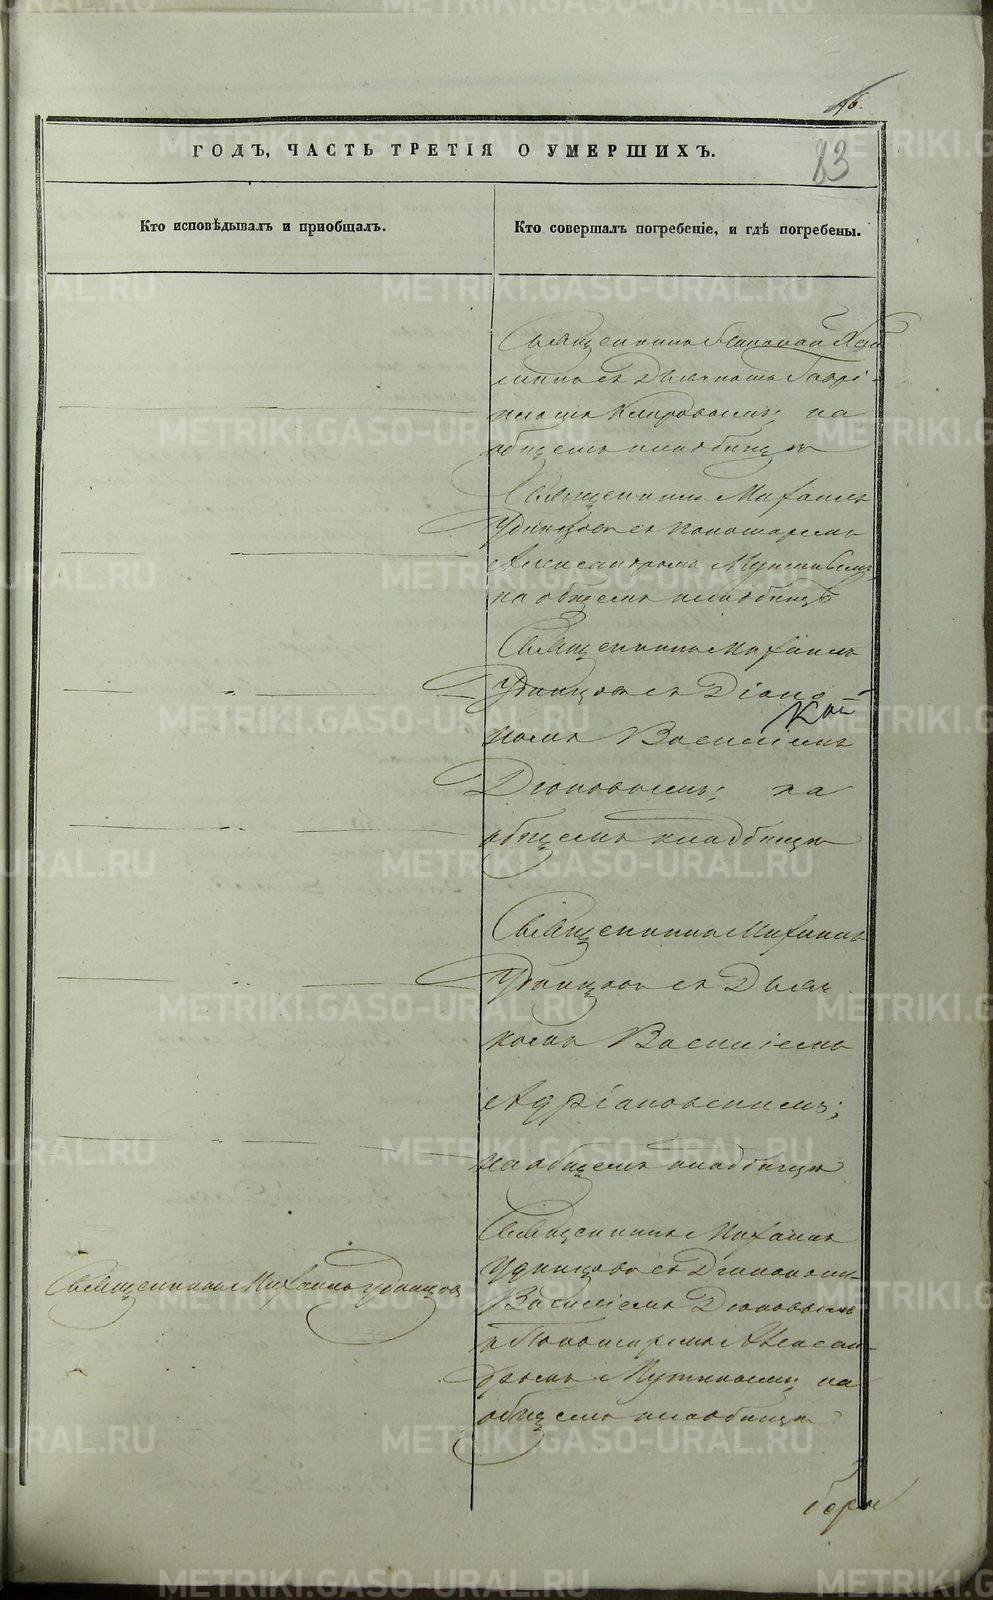 46.
83
ГОДЪ, ЧАСТЬ ТРЕТІЯ О УМЕРШИХЪ.
Кто исповѣдывалъ и пріобщалъ.
Кто совершалъ погребеніе, и гдѣ погребены.
Священникъ
съ Дьячкомъ Гаврі-
на
общемъ кладбищѣ
Священникъ Михаилъ
Удинцовъ съ Пономаремъ
Александромъ
на общемъ кладбищѣ
Священникъ Михаилъ
Удинцовъ съ Діако
номъ Василіемъ
Діоновымъ; на
общемъ кладбищѣ
Священникъ Михаилъ
Удинцовъ съ Дьяч
комъ Василіемъ
Адріановскимъ;
на общемъ кладбищѣ
Священникъ Михаилъ Удинцовъ
Священникъ Михаилъ
Удинцовъ съ Діакономъ
Василіемъ Діоновымъ
и Пономаремъ Алексан-
дромъ на
общемъ кладбищѣ
METRIKI.GASO-URAL.RU